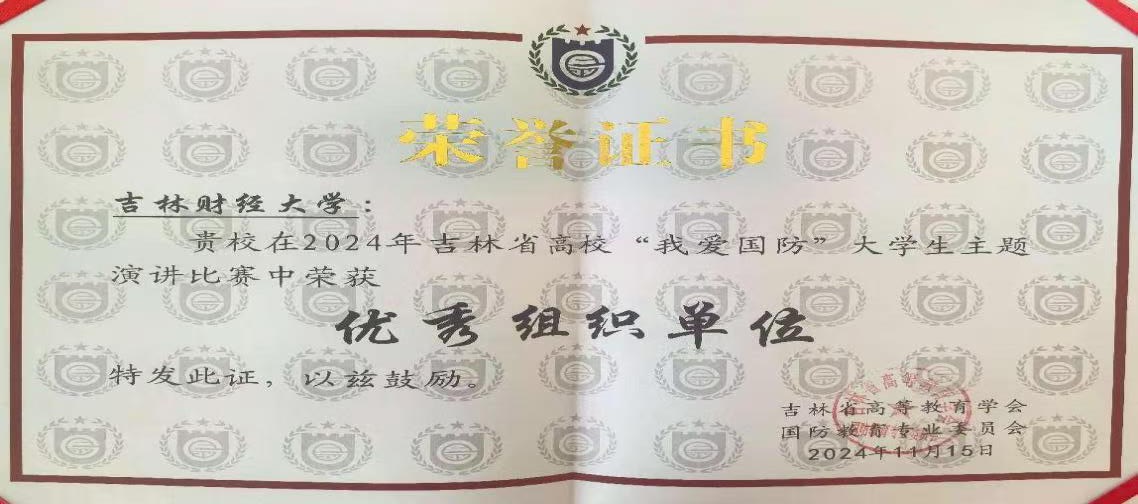 荣誉证书
吉林财经大学：
贵校在2024年吉林省高校“我爱国防”大学生主题
演讲比赛中荣获
优秀组织单位
特发此证，以兹鼓励。
吉林省高等教育学会
国防教育专业委员会
2024年11月15日